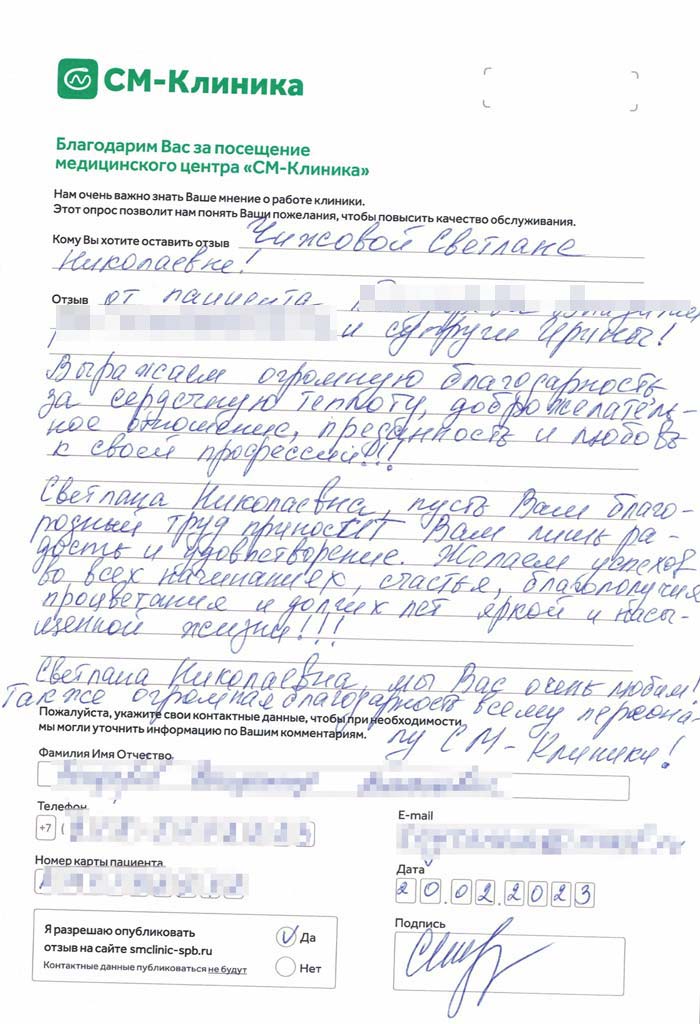 СМ-Клиника
Благодарим Вас за посещение
медицинского центра «СМ-Клиника»
Нам очень важно знать Ваше мнение о работе клиники.
Этот опрос позволит нам понять Ваши пожелания, чтобы повысить качество обслуживания.
Кому Вы хотите оставить отзыв Чижовой Светлане
Николаевне!
Отзыв от пациента
и супруги Ирины!
Выражаем огромную благодарность
за сердечную теплоту, доброжелатель-
ное отношение, преданность и любовь
к своей профессии!!!
Светлана Николаевна, пусть Вам благо-
родный труд приносит Вам лишь ра-
дость и удовлетворение. Желаем успехов
во всех начинаниях, счастья, благополучия
процветания и долгих лет яркой и насы-
щенной жизни!!!
Светлана Николаевна, мы Вас очень любим!
Также огромная благодарность всему персона-
лу СМ-Клиники!
Пожалуйста, укажите свои контактные данные, чтобы при необходимости
мы могли уточнить информацию по Вашим комментариям.
Фамилия Имя Отчество
Телефон
+7 (
E-mail
Номер карты пациента
Дата
20.02.2023
Я разрешаю опубликовать
отзыв на сайте smclinic-spb.ru
Контактные данные публиковаться не будут
Да
Нет
Подпись